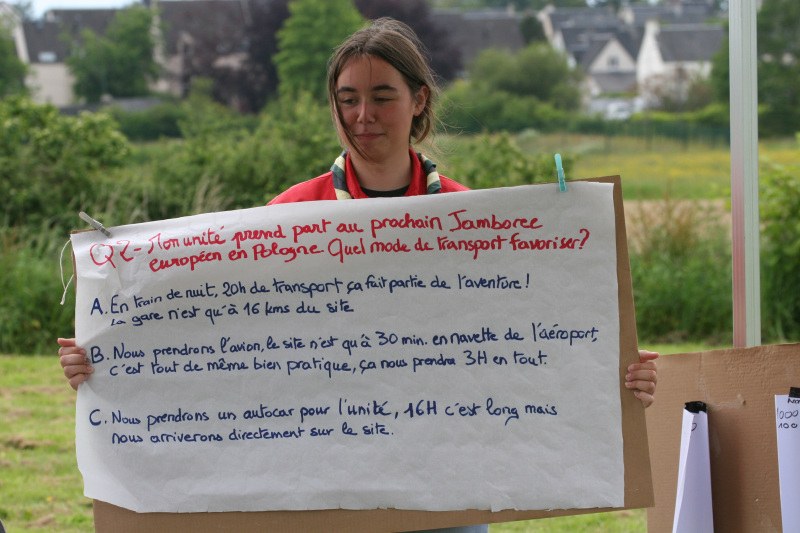 Q2- Mon unité prend part au prochain Jamboree
européen en Pologne. Quel mode de transport favoriser?
A. En train de nuit, 20h de transport ça fait partie de l'aventure!
La gare n'est qu'à 16 kms du site
B. Nous prendrons l'avion, le site n'est qu'à 30 min. en navette de l'aéroport,
c'est tout de même bien pratique, ça nous prendra 3H en tout.
C. Nous prendrons un autocar pour l'unité, 16H c'est long mais
nous arriverons directement sur le site.
1000
100